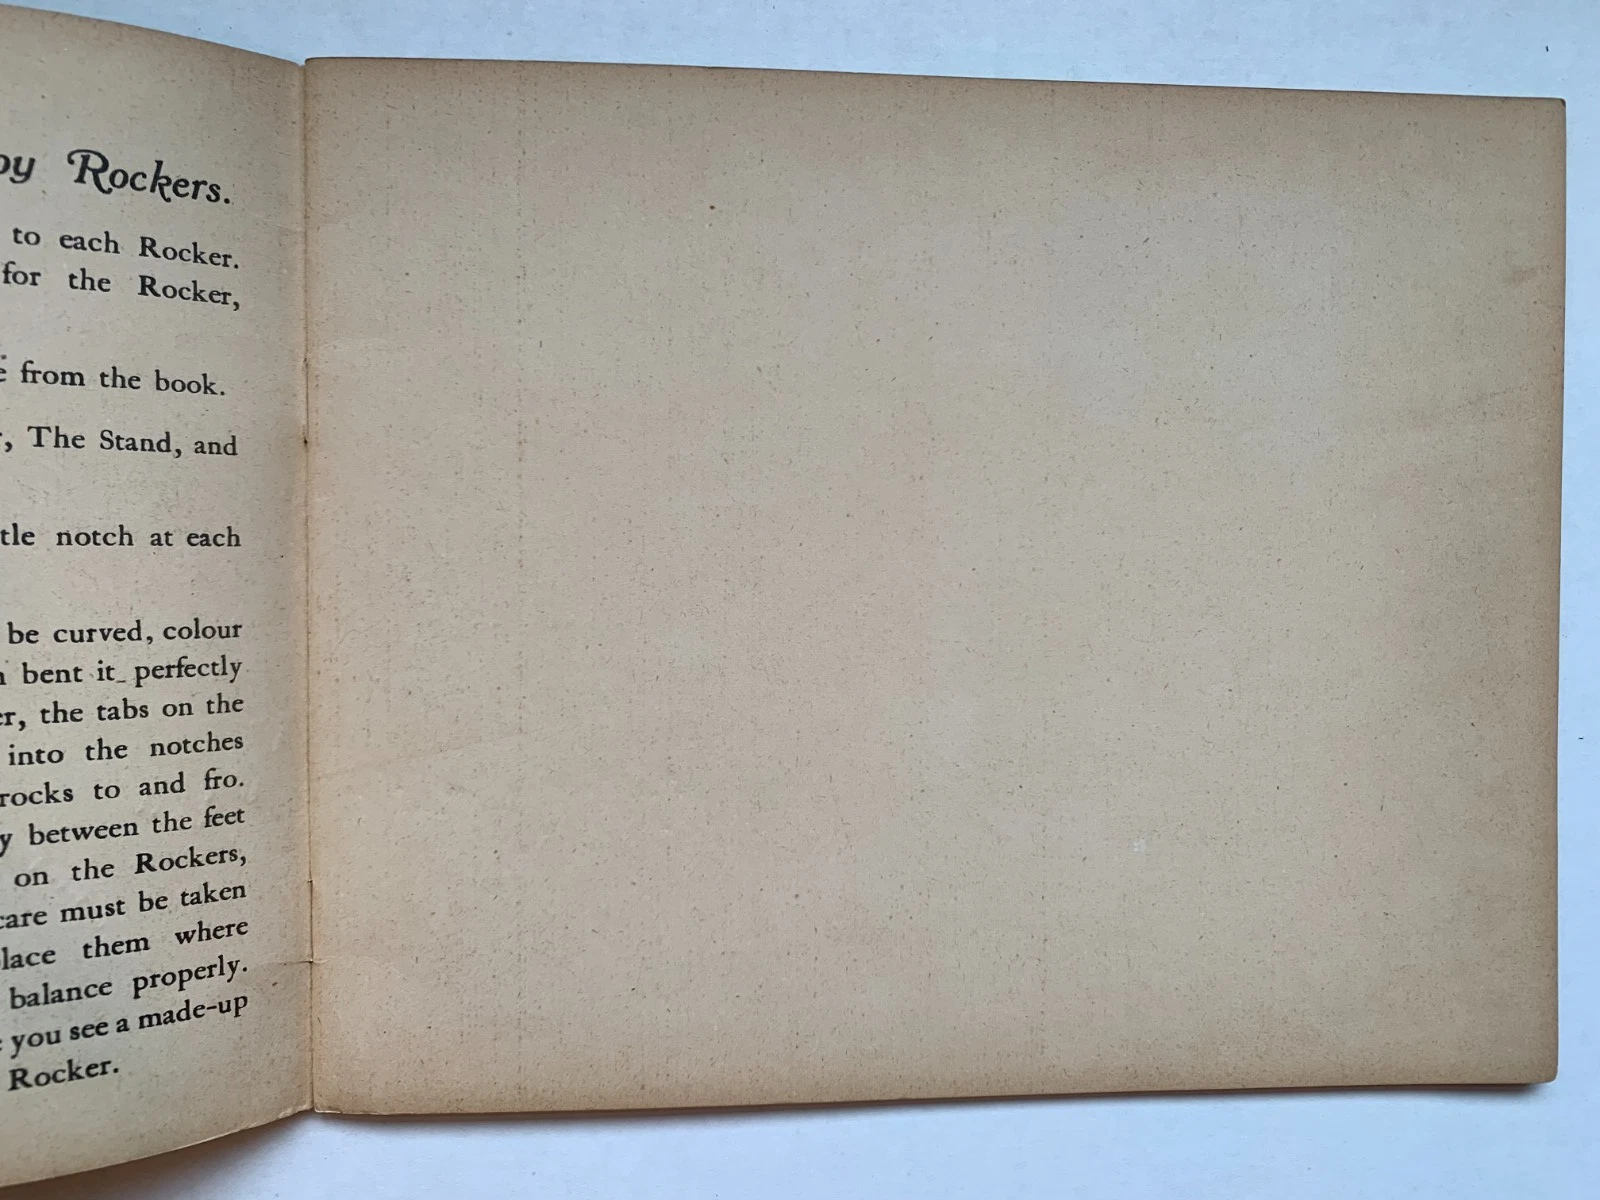 Rockers.
to each Rocker.
for the Rocker,
from the book.
The Stand, and
notch at each
be curved, colour
bent it perfectly
the tabs on the
into the notches
rocks to and fro.
between the feet
on the Rockers,
care must be taken
them where
balance properly.
you see a made-up
Rocker.